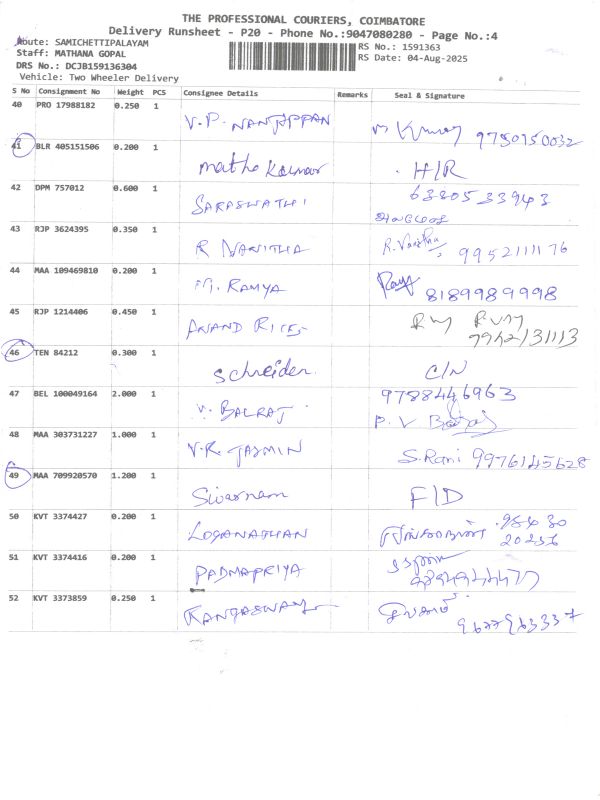 THE PROFESSIONAL COURIERS, COIMBATORE
Delivery Runsheet - P20 - Phone No.:9047080280 - Page No.:4
Route: SAMICHETTIPALAYAM
Staff: MATHANA GOPAL
DRS No.: DCJB159136304
Vehicle: Two Wheeler Delivery
RS No.: 1591363
RS Date: 04-Aug-2025
S No Consignment No Weight PCS Consignee Details Remarks Seal & Signature
40 PRO 17988182 0.250 1 V.P. NANJAPPAN 9750150032
41 BLR 405151506 0.200 1 H/R
42 DPM 757012 0.600 1 SARASWATHI 6380533943
43 RJP 3624395 0.350 1 R VANITHA R. Vanitha 9952111176
44 MAA 109469810 0.200 1 RAMYA 8189989998
45 RJP 1214406 0.450 1 ANAND
46 TEN 84212 0.300 1 Schneider
47 BEL 100049164 2.000 1 V. BALRAJ 9788446963
P. V
48 MAA 303731227 1.000 1 V.R. JASMIN S. Rani 9976145628
49 MAA 709920570 1.200 1 F/D
50 KVT 3374427 0.200 1 LOGANATHAN
51 KVT 3374416 0.200 1 PADMAPRIYA
52 KVT 3373859 0.250 1 KANDASWAMY